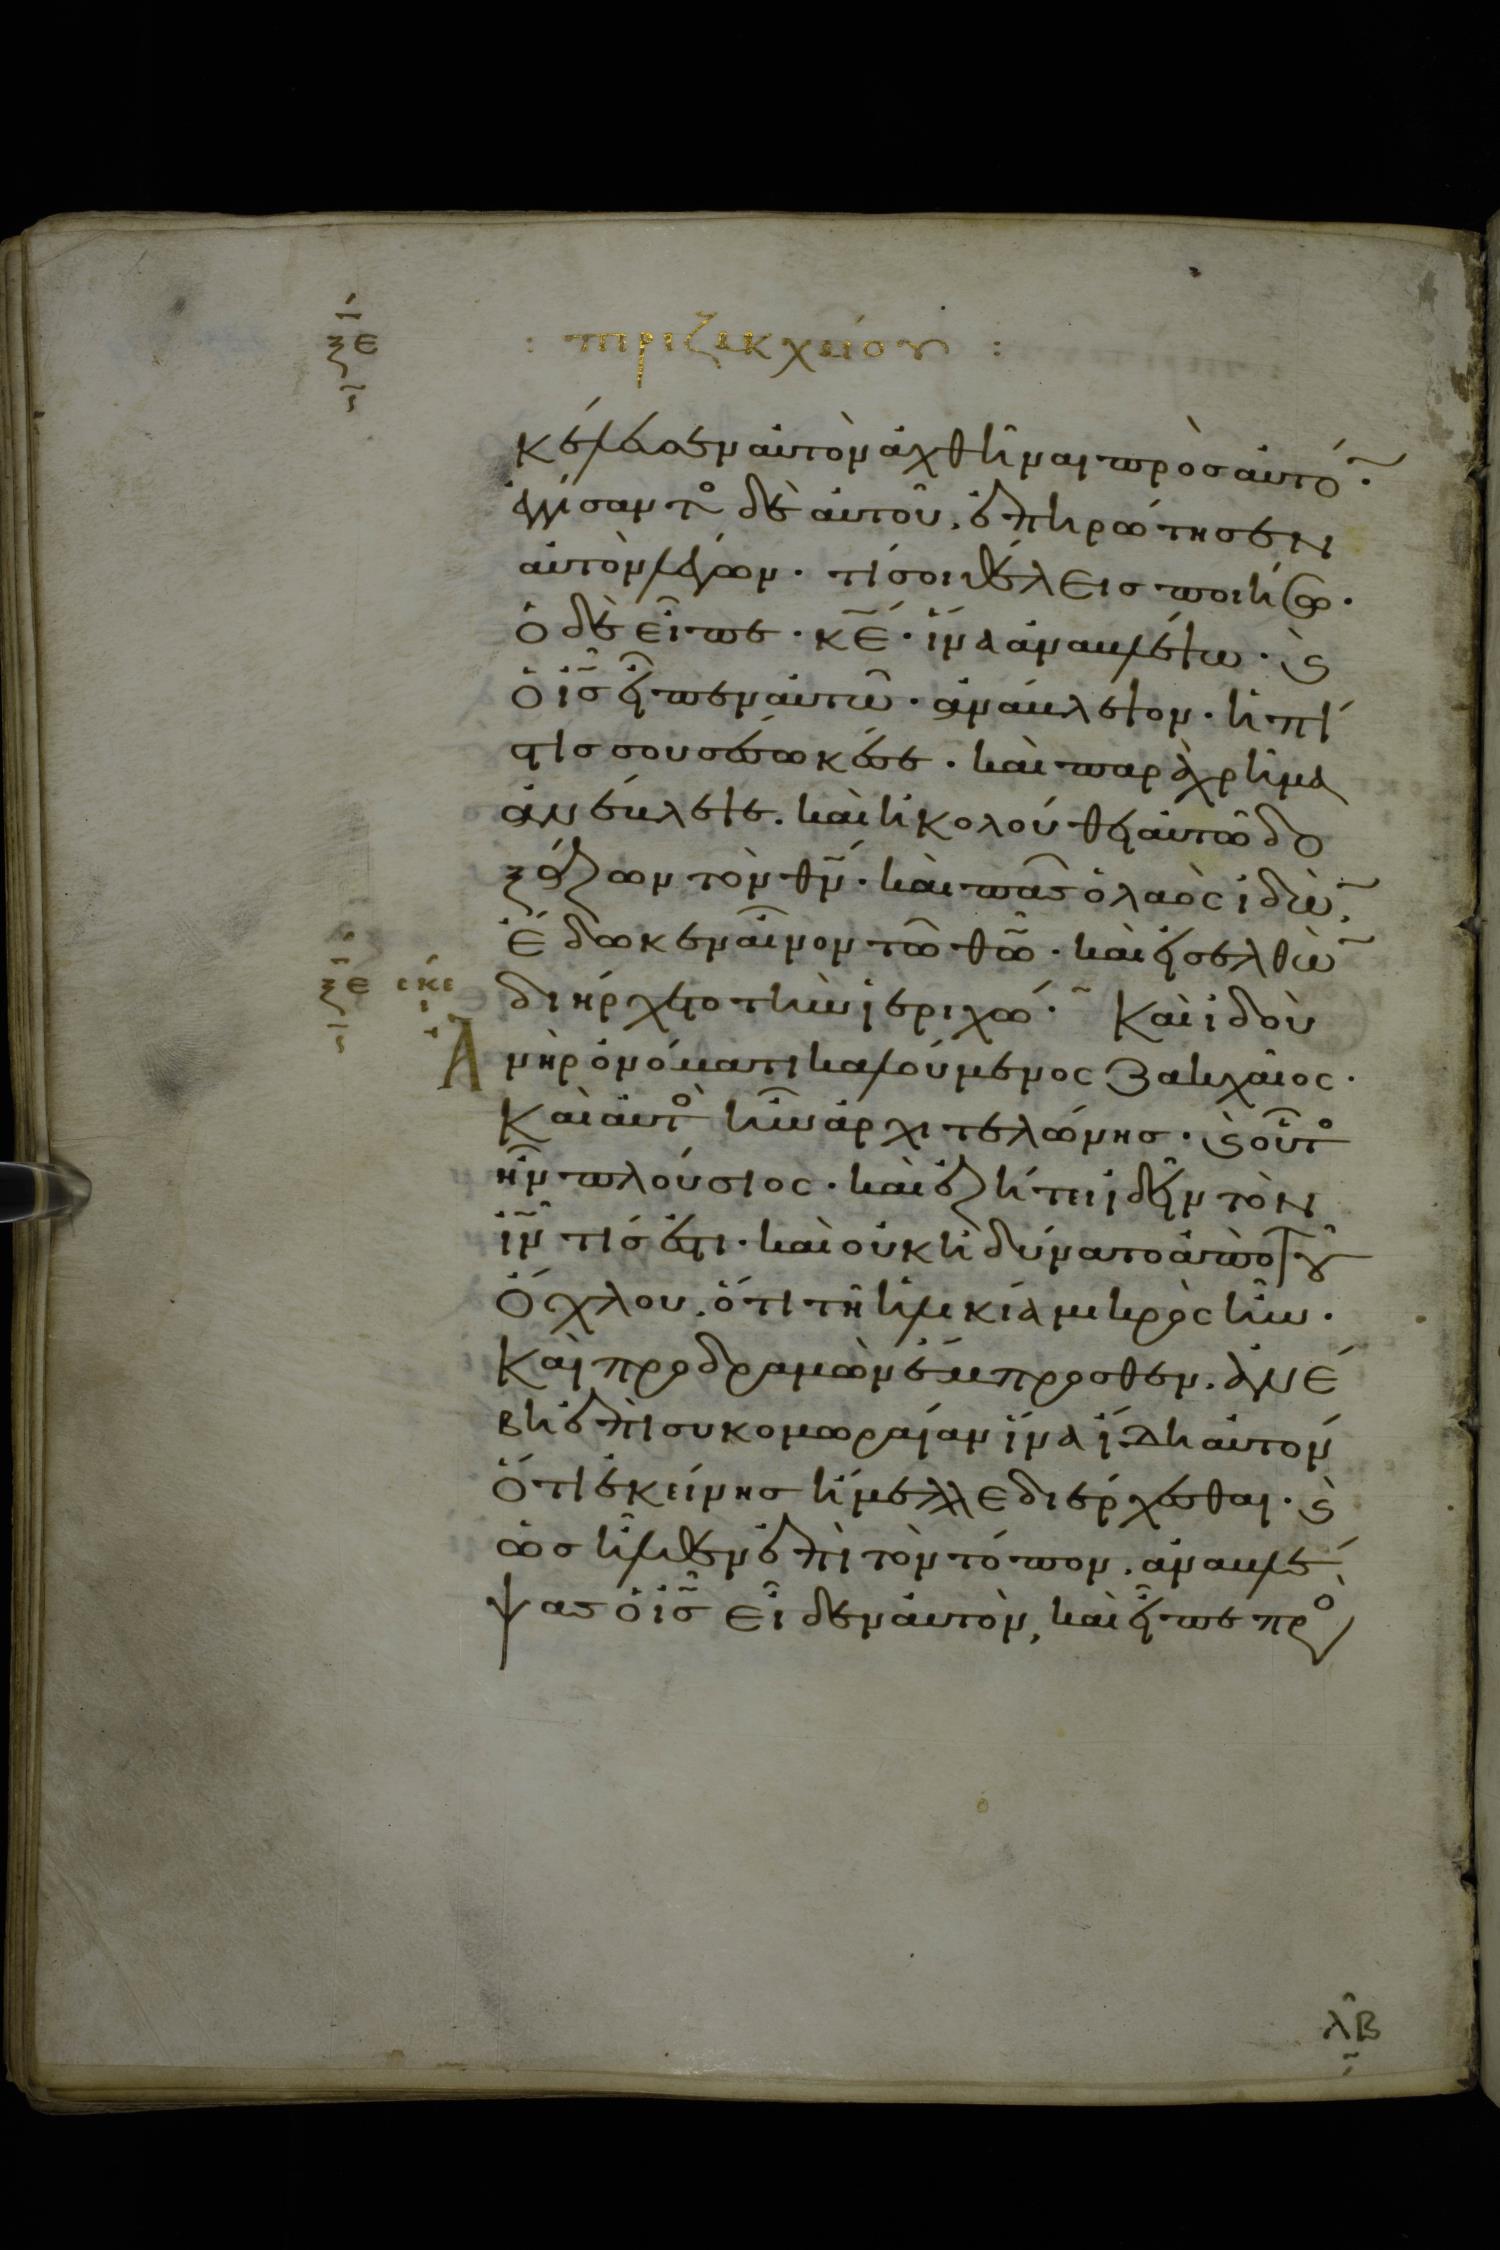 ξε
: περι ζακχαίου :
κέλευσεν αὐτὸν ἀχθῆναι πρὸς αὐτό̃·
ἐγγίσαντο δὲ αὐτοῦ, ἐπηρώτησεν
αὐτὸν λέγων· τί σοι θέλεις ποιήσω·
ὁ δὲ εἶπε· κ̅ε̅· ἵνα ἀναβλέψω· ϛ̀
ὁ ι̅σ̅ εἶπεν αὐτῶ· ἀνάβλεψον· ἡ πί
στις σου σέσωκέ σε· καὶ παραχρῆμα
ἀνέβλεψε. καὶ ἠκολούθει αὐτῶ δο
ξάζων τὸν θ̅ν̅· καὶ πᾶς ὁ λαὸς ἰδὼ̃,
ἔδωκεν αἶνον τῶ θ̅ω̅· καὶ εἰσελθὼ̃
διήρχετο τὴν ἱεριχώ· Καὶ ἰδοὺ
ξε
Ἀνὴρ ὀνόματι καλούμενος Ζακχαῖος·
Καὶ αὐτὸ ἦν ἀρχιτελώνης· ϛ̀ οὗτο
ἦν πλούσιος· καὶ ἐζήτει ἰδεῖν τὸν
ι̅ν̅ τίς ἐστι· καὶ οὐκ ἠδύνατο ἀπὸ τοῦ
ὄχλου, ὅτι τῆ ἡλικία μικρὸς ἦν·
Καὶ προδραμὼν ἔμπροσθεν, ἀνέ
βη ἐπὶ συκομωραίαν ἵνα ἴδη αὐτόν
ὅτι ἐκείνης ἤμελλε διέρχεσθαι· ϛ̀
ὡς ἦλθεν ἐπὶ τὸν τόπον, ἀναβλέ
ψας ὁ ι̅σ̅ εἶδεν αὐτὸν, καὶ εἶπε πρὸ
λβ